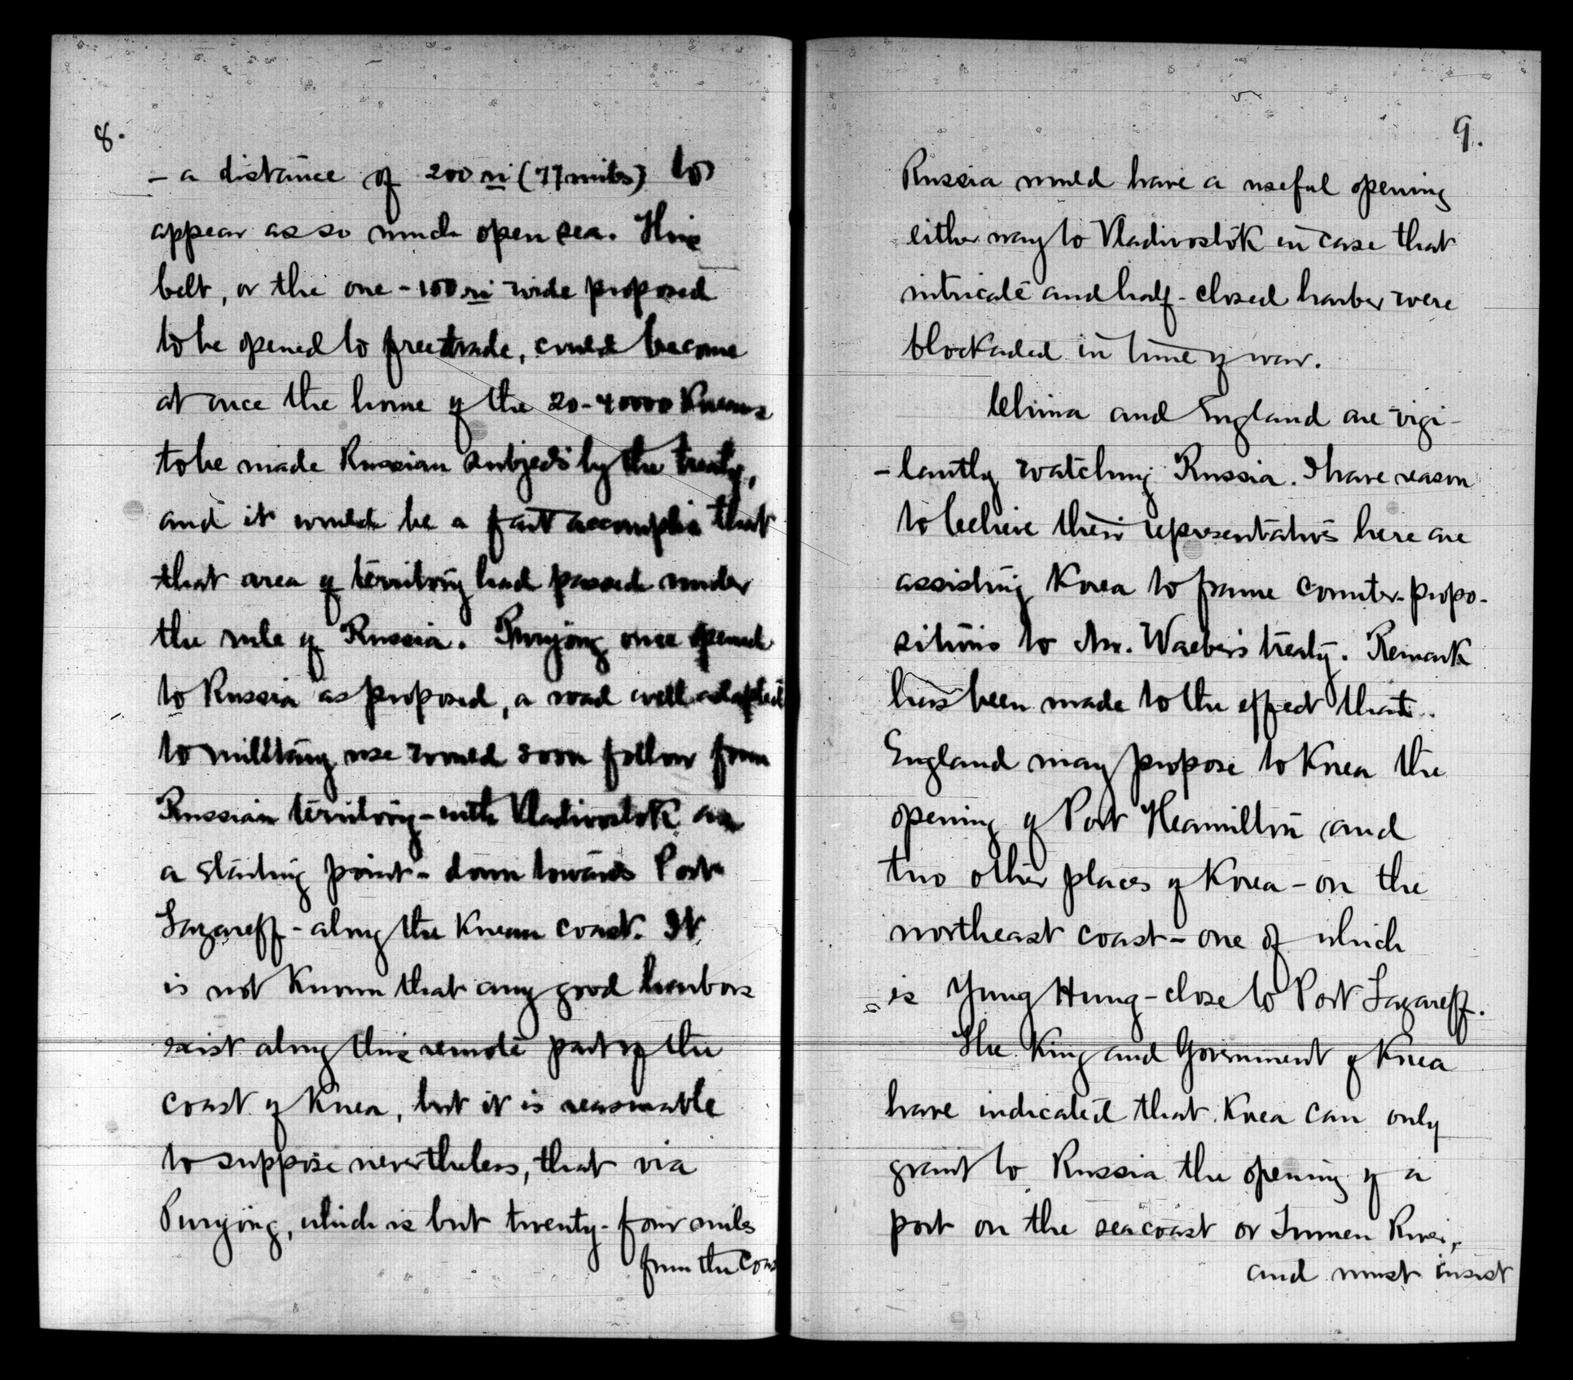 8.
– a distance of 200 ri (77 miles) to
appear as so much open sea. This
belt, or the one - 100 ri wide proposed
to be opened to free trade, could become
at once the home of the 20-40000 Koreans
to be made Russian subjects by the treaty,
and it would be a fait accomplis that
that area of territory had passed under
the rule of Russia. Puryöng once opened
to Russia as proposed, a road well adapted
to military use would soon follow from
Russian territory - with Vladivostok as
a starting point - down towards Port
Lazareff - along the Korean coast. It
is not known that any good harbors
exist along this remote part of the
coast of Korea, but it is reasonable
to suppose nevertheless, that via
Puryöng, which is but twenty-four miles
from the coast
9.
Russia would have a useful opening
either way to Vladivostok in case that
intricate and half-closed harbor were
blockaded in time of war.
China and England are vigi-
-lantly watching Russia. I have reason
to believe their representatives here are
assisting Korea to frame counter-propo-
sitions to Mr. Waeber's treaty. Remark
has been made to the effect that
England may propose to Korea the
opening of Port Hamilton and
two other places of Korea - on the
northeast coast - one of which
is Yung Hung - close to Port Lazareff.
The King and Government of Korea
have indicated that Korea can only
grant to Russia the opening of a
port on the seacoast or Tumen River,
and must insist